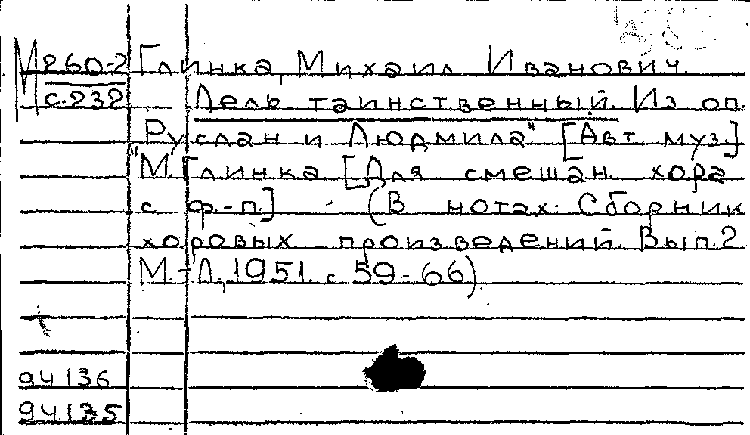 М 860-2 Глинка, Михаил Иванович.
с.232 Лель таинственный. Из оп.
"Руслан и Людмила" [Авт. муз.]
М. Глинка [Для смешан. хора
с ф.-п.] (В нотах: Сборник
хоровых произведений. Вып. 2
М.-Л., 1951. с. 59-66).
94136
94135